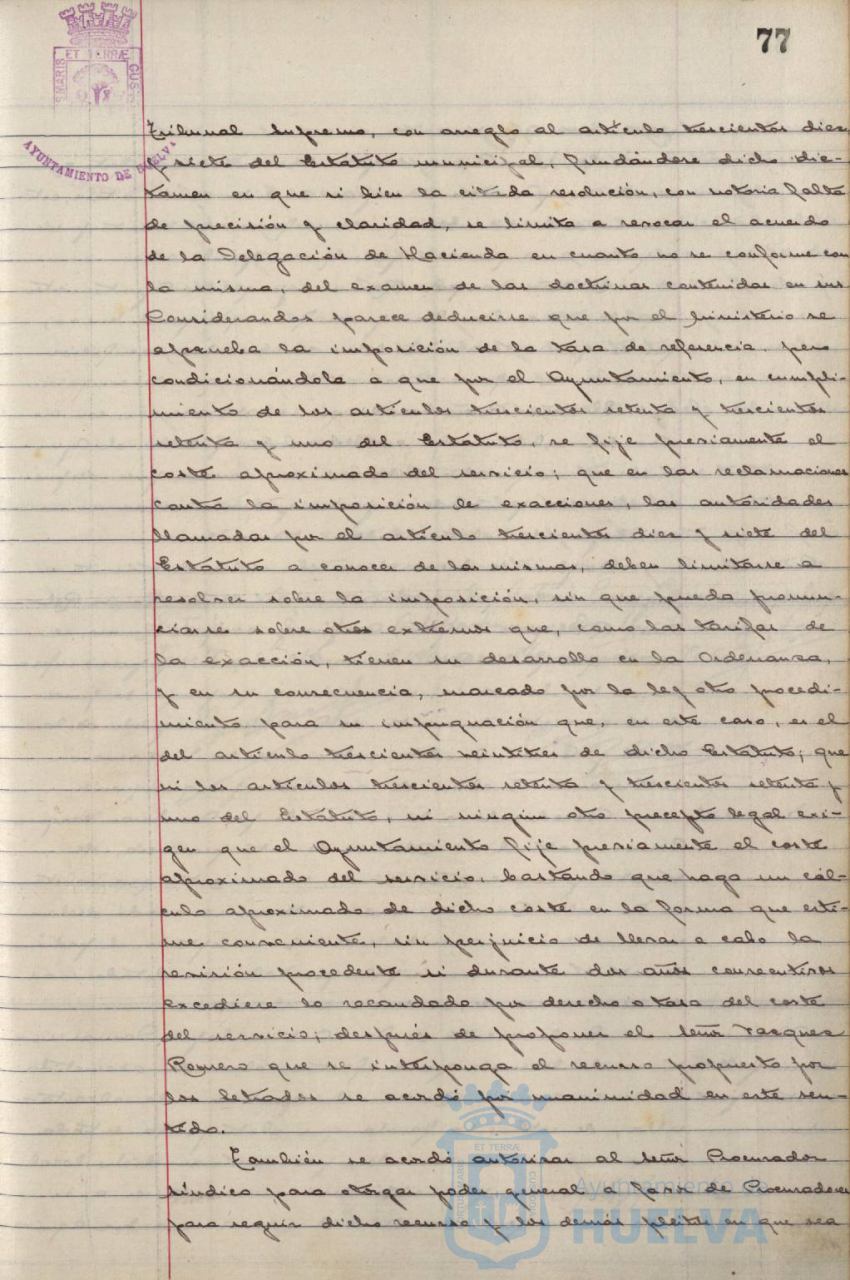 77
ET TERRÆ
MARIS
CUSTODIA
AYUNTAMIENTO DE HUELVA
Tribunal Supremo, con arreglo al artículo trescientos diez
y siete del Estatuto municipal, fundándose dicho dic-
tamen en que si bien la citada resolución, con notoria falta
de precisión y claridad, se limita a revocar el acuerdo
de la Delegación de Hacienda en cuanto no se conforme con
la misma, del examen de las doctrinas contenidas en sus
Considerandos parece deducirse que por el Ministerio se
aprueba la imposición de la tasa de referencia, pero
condicionándola a que por el Ayuntamiento, en cumpli-
miento de los artículos trescientos setenta y trescientos
setenta y uno del Estatuto, se fije previamente el
coste aproximado del servicio; que en las reclamaciones
contra la imposición de exacciones, las autoridades
llamadas por el artículo trescientos diez y siete del
Estatuto a conocer de las mismas, deben limitarse a
resolver sobre la imposición, sin que pueda pronun-
ciarse sobre otros extremos que, como las tarifas de
la exacción, tienen su desarrollo en la Ordenanza,
y en su consecuencia, marcado por la ley otro procedi-
miento para su impugnación que, en este caso, es el
del artículo trescientos veintitres de dicho Estatuto; que
ni los artículos trescientos setenta y trescientos setenta y
uno del Estatuto, ni ningún otro precepto legal exi-
gen que el Ayuntamiento fije previamente el coste
aproximado del servicio, bastando que haga un cál-
culo aproximado de dicho coste en la forma que esti-
me conveniente, sin perjuicio de llevar a cabo la
revisión procedente si durante dos años consecutivos
excediere lo recaudado por derecho o tasa del coste
del servicio; después de proponer el Señor Vazquez
Romero que se interponga el recurso propuesto por
los letrados se acordó por unanimidad en este sen-
tido.
También se acordó autorizar al Señor Procurador
Síndico para otorgar poder general a favor de Procuradores
para seguir dicho recurso y los demás pleitos en que sea
ET TERRÆ
Ayuntamiento de
HUELVA